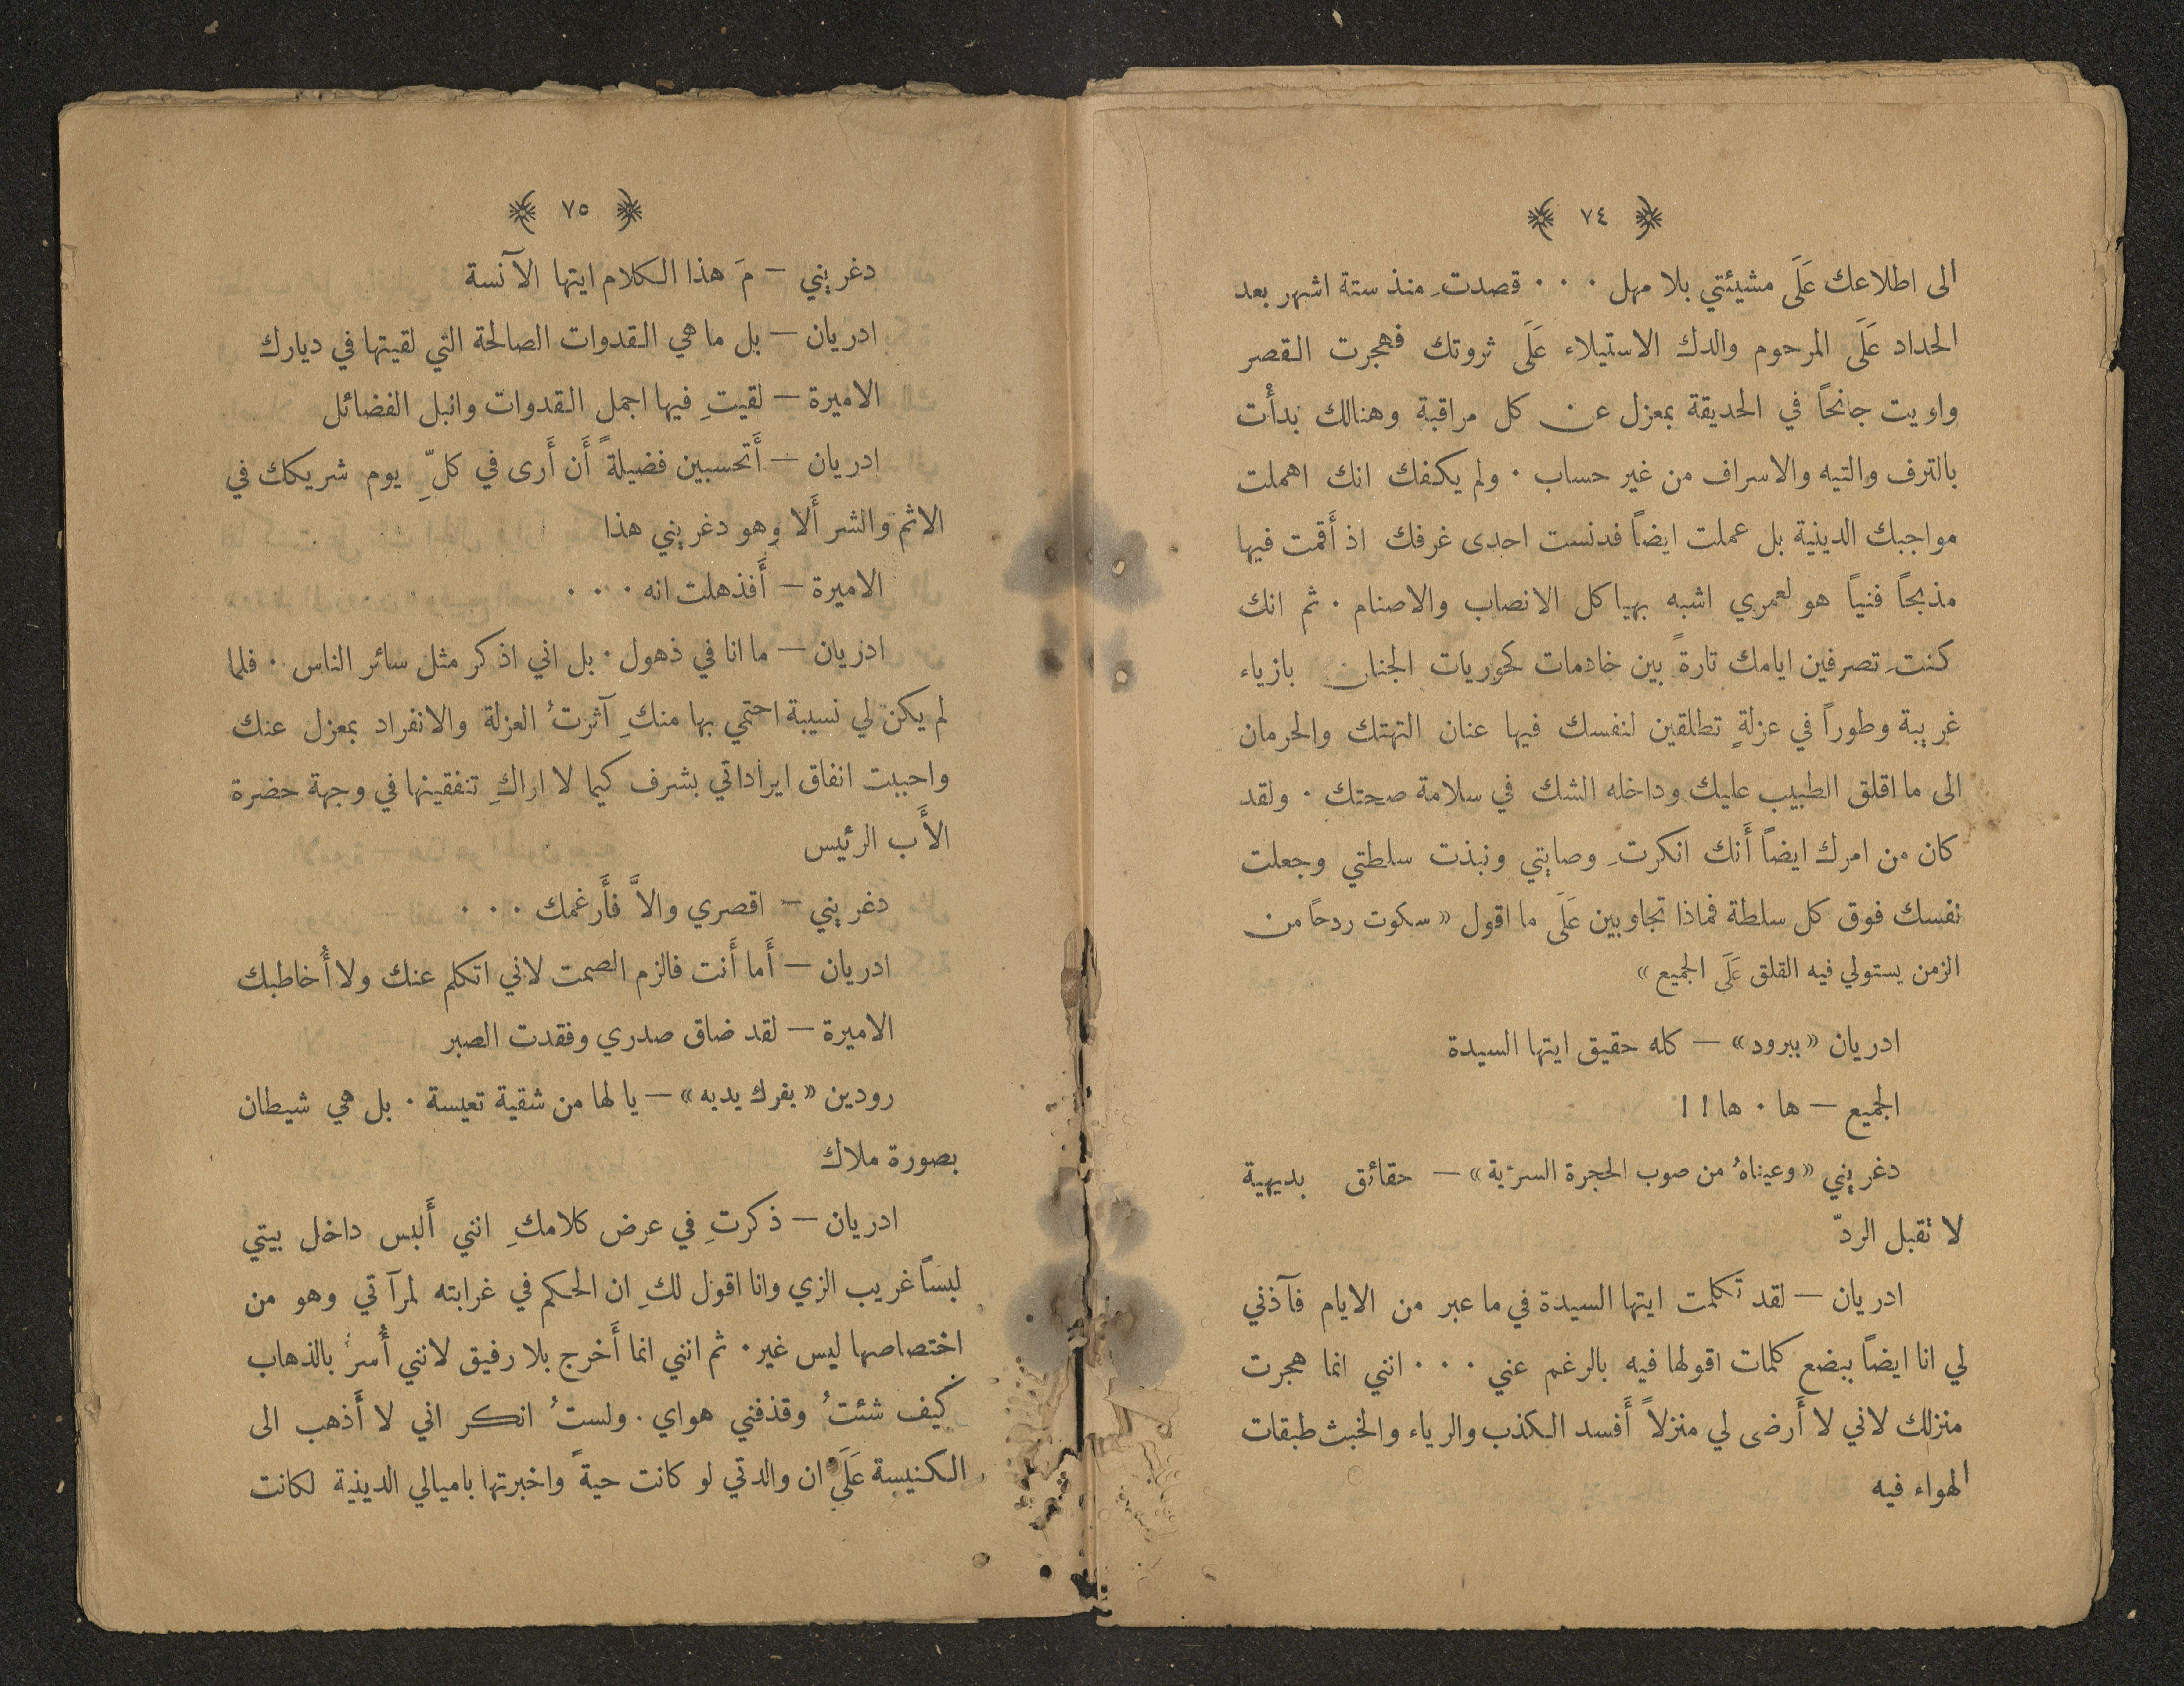 ٧٤
الى اطلاعك عَلَى مشيئتي بلا مهل . . . قصدتِ منذ ستة اشهر بعد
الحداد عَلَى المرحوم والدك الاستيلاء عَلَى ثروتك فهجرت القصر
واويت جانحاً في الحديقة بمعزل عن كل مراقبة وهنالك بدأْت
بالترف والتيه والاسراف من غير حساب . ولم يكفك انك اهملت
مواجبك الدينية بل عملت ايضاً فدنست احدى غرفك اذ أَقمت فيها
مذبحاً فنياً هو لعمري اشبه بهياكل الانصاب والاصنام . ثم انك
كنتِ تصرفين ايامك تارةً بين خادمات كحوريات الجنان بازياء
غريبة وطوراً في عزلةٍ تطلقين لنفسك فيها عنان التهتك والحرمان
الى ما اقلق الطبيب عليك وداخله الشك في سلامة صحتك . ولقد
كان من امرك ايضاً أَنك انكرتِ وصايتي ونبذت سلطتي وجعلت
نفسك فوق كل سلطة فماذا تجاوبين عَلَى ما اقول « سكوت ردحاً من
الزمن يستولي فيه القلق عَلَى الجميع »
ادريان « ببرود » — كله حقيق ايتها السيدة
الجميع — ها . ها ! !
دغريني « وعيناهُ من صوب الحجرة السرّية » — حقائق بديهية
لا تقبل الردّ
ادريان — لقد تكلمت ايتها السيدة في ما عبر من الايام فآذني
لي انا ايضاً ببضع كلمات اقولها فيه بالرغم عني . . . انني انما هجرت
منزلك لاني لا أَرضى لي منزلاً أَفسد الكذب والرياء والخبث طبقات
الهواء فيه
٧٥
دغريني — مَ هذا الكلام ايتها الآنسة
ادريان — بل ما هي القدوات الصالحة التي لقيتها في ديارك
الاميرة — لقيتِ فيها اجمل القدوات وانبل الفضائل
ادريان — أَتحسبين فضيلةً أَن أَرى في كلّ يوم شريكك في
الاثم والشر أَلا وهو دغريني هذا
الاميرة — أَفذهلت انه . . .
ادريان — ما انا في ذهول . بل اني اذكر مثل سائر الناس . فلما
لم يكن لي نسيبة احتمي بها منكِ آثرتُ العزلة والانفراد بمعزل عنك
واحببت انفاق ايراداتي بشرف كيما لا اراكِ تنفقينها في وجهة حضرة
الأَب الرئيس
دغريني — اقصري والاَّ فأَرغمك . . .
ادريان — أَما أَنت فالزم الصمت لاني اتكلم عنك ولا أُخاطبك
الاميرة — لقد ضاق صدري وفقدت الصبر
رودين « يفرك يديه » — يا لها من شقية تعيسة . بل هي شيطان
بصورة ملاك
ادريان — ذكرتِ في عرض كلامكِ انني أَلبس داخل بيتي
لبساً غريب الزي وانا اقول لكِ ان الحكم في غرابته لمرآتي وهو من
اختصاصها ليس غير . ثم انني انما أَخرج بلا رفيق لانني أُسرُّ بالذهاب
كيف شئتُ وقذفني هواي . ولستُ انكر اني لا أَذهب الى
الكنيسة عَلَى ان والدتي لو كانت حيةً واخبرتها باميالي الدينية لكانت